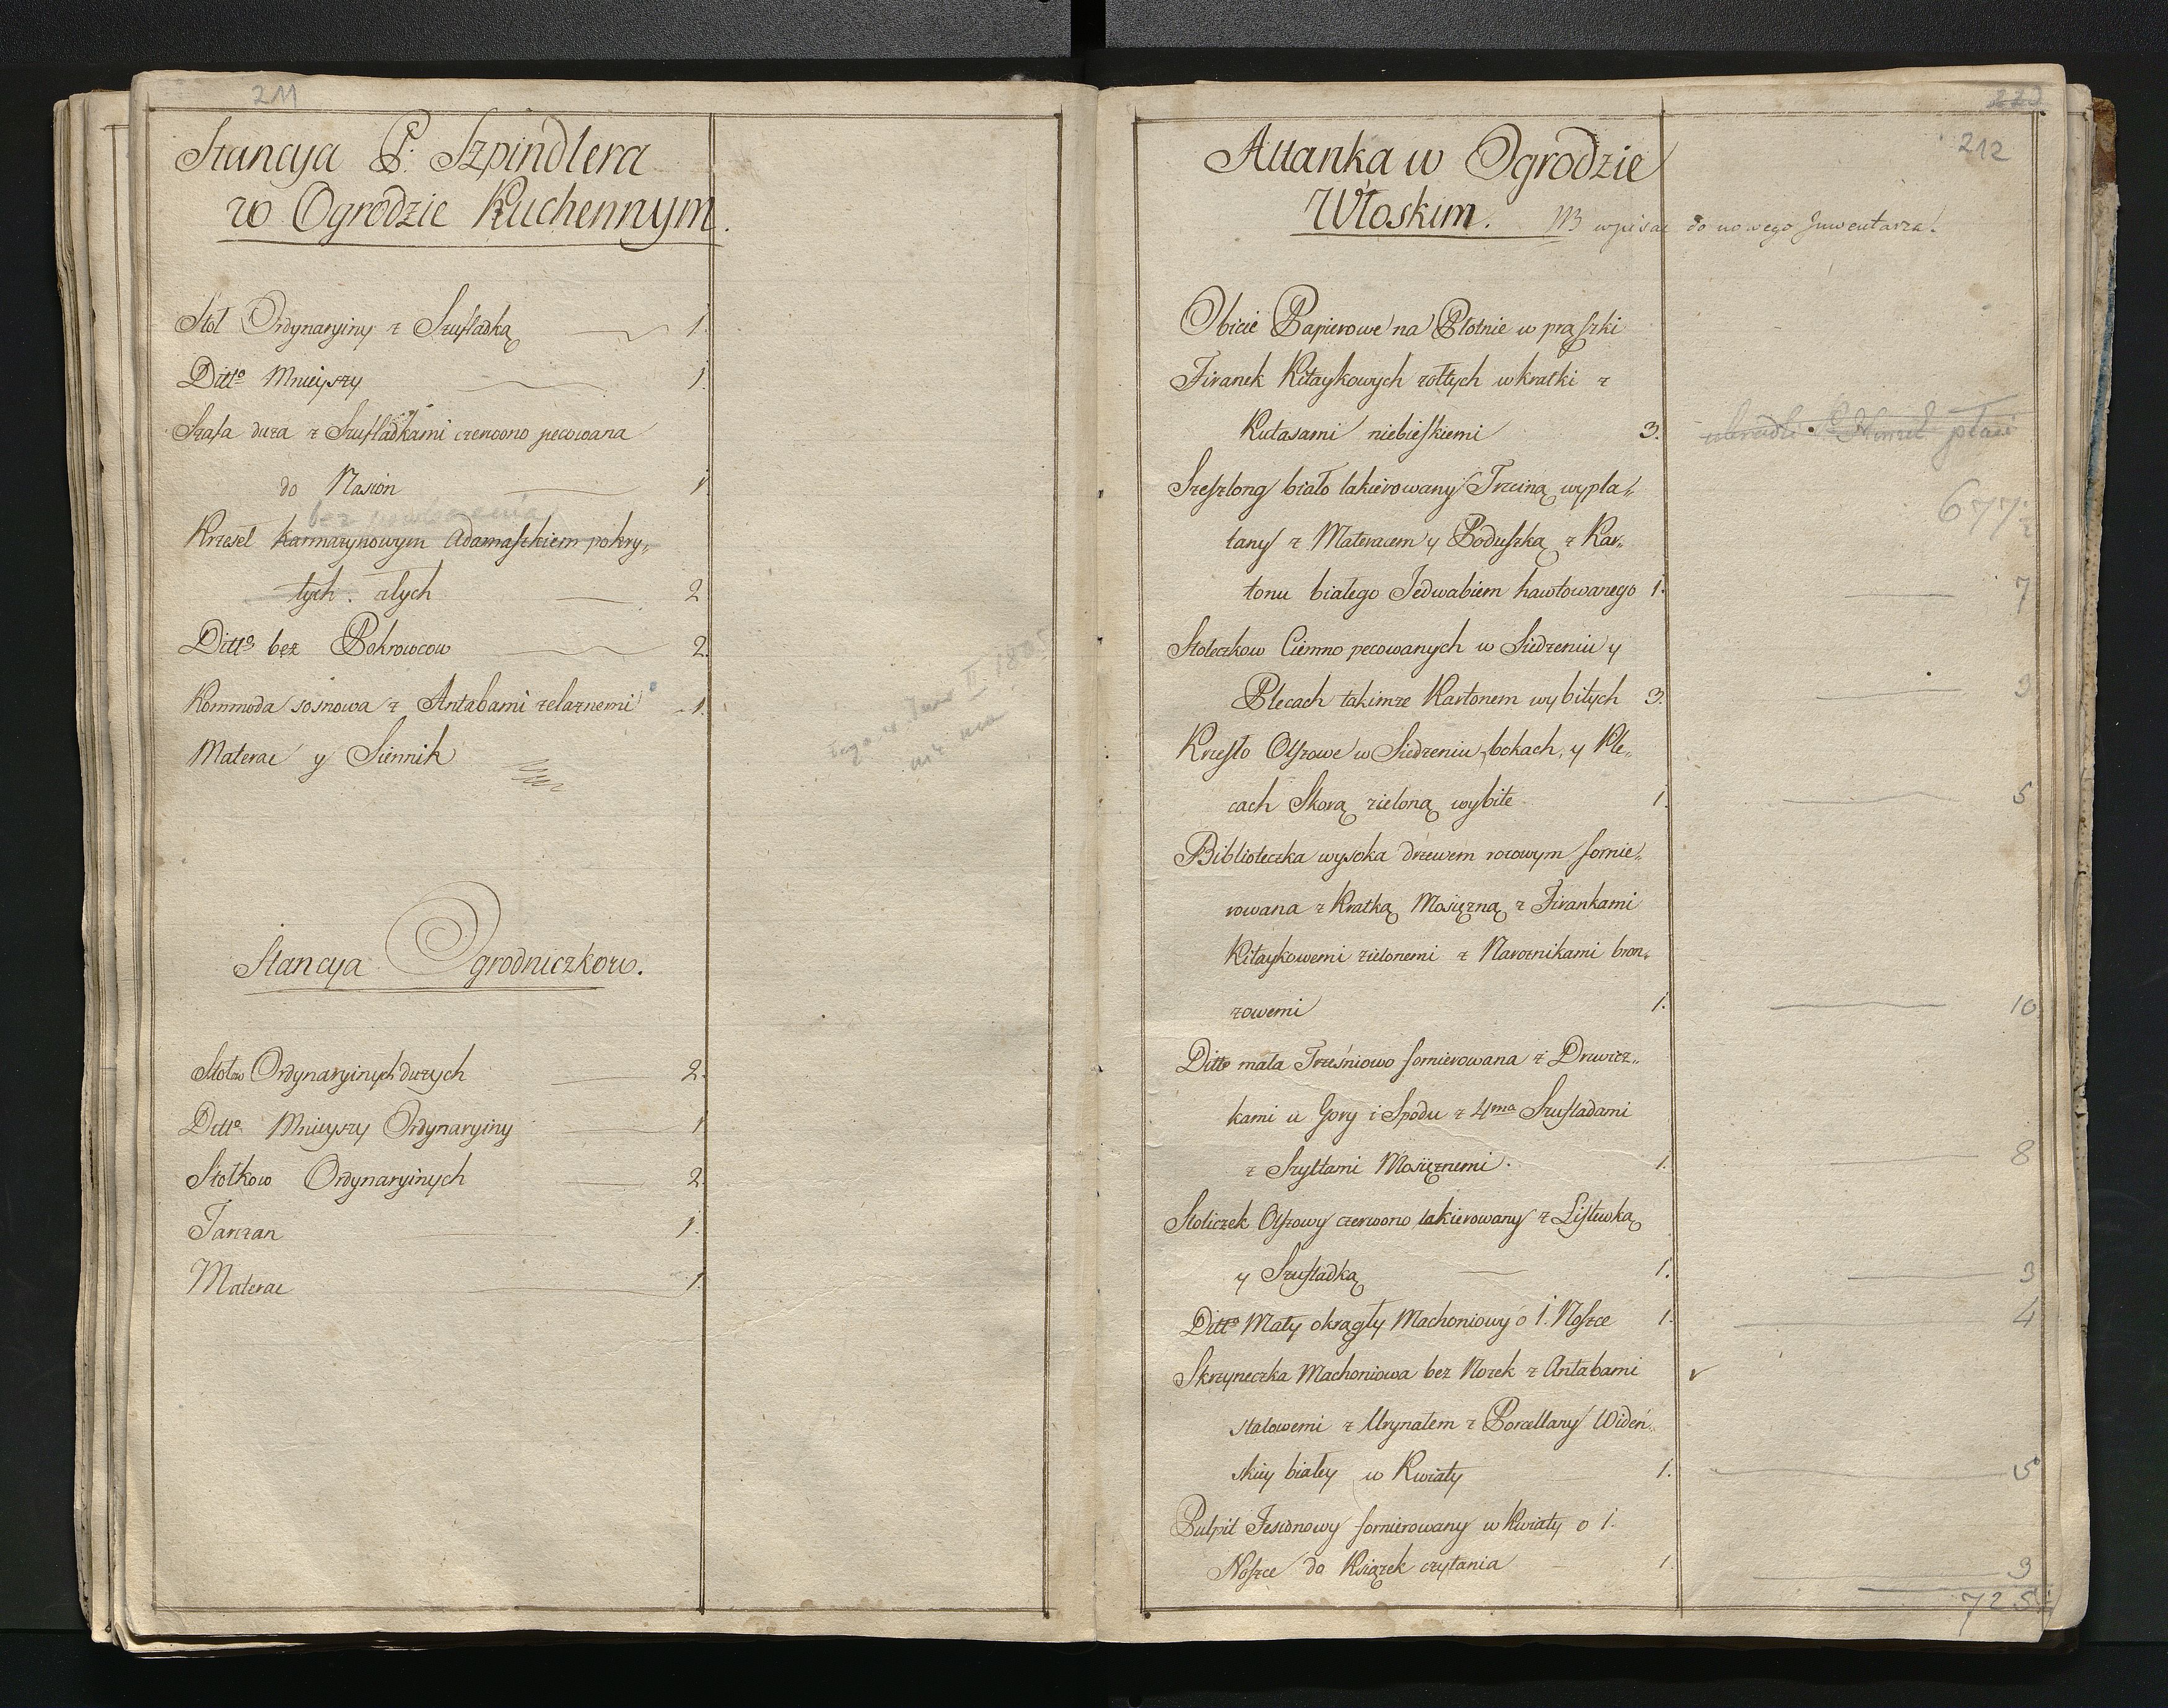 211
Stancya P. Szpindlera
w Ogrodzie Kuchennym.
Stół Ordynaryiny z Szufladką 1.
Ditto Mnieyszy 1.
Szafa duża z Szufladkami czerwono pecowana
do Nasion 1.
bez
Krzeseł Karmazynowym Adamaszkiem pokry„
tych. złych 2
Ditto bez Pokrowcow 2.
Kommoda sosnowa z Antabami żelaznemi 1.
Materac y Siennik
1805
nie ma
Stancya Ogrodniczkow.
Stołow Ordynaryinych dużych 2.
Ditto Mnieyszy Ordynaryiny 1
Stołkow Ordynaryinych 2.
Tarczan 1.
Materac 1.
212
Altanka w Ogrodzie
Włoskim. NB wpisac do nowego Inwentarza!
Obicie Papierowe na Płotnie w prąszki
Firanek Kitaykowych zołtych w kratki z
Kutasami niebieskiemi 3.
677
Szeszlong biało lakierowany Trzciną wypla„
tany z Materacem y Poduszką z Kar„
tonu białego Jedwabiem hawtowanego 1. 7
Stołeczkow Ciemno pecowanych w Siedzeniu y
Plecach takimze Kartonem wybitych 3. 3
Krzesło Olszowe w Siedzeniu, bokach, y Ple„
cach Skorą zieloną wybite 1. 5
Biblioteczka wysoka drzewem rozowym fornie„
rowana z Kratką Mosiężną z Firankami
Kitaykowemi zielonemi z Narożnikami bron„
zowemi 1. 10
Ditto mała Trześniowo fornierowana z Drzwicz„
kami u Gory i Spodu z 4ma Szufladami
z Szyltami Mosiężnemi. 1. 8
Stoliczek Olszowy czerwono lakierowany z Listewką
y Szufladką 1. 3
Ditto Mały okrągły Machoniowy o 1. Noszce 1. 4
Skrzyneczka Machoniowa bez Nozek z Antabami
stalowemi z Urynałem z Porcellany Wideń„
skiey białey w Kwiaty 1. 5
Pulpit Jesionowy fornierowany w Kwiaty o 1.
Noszce do Książek czytania 1. 3
725